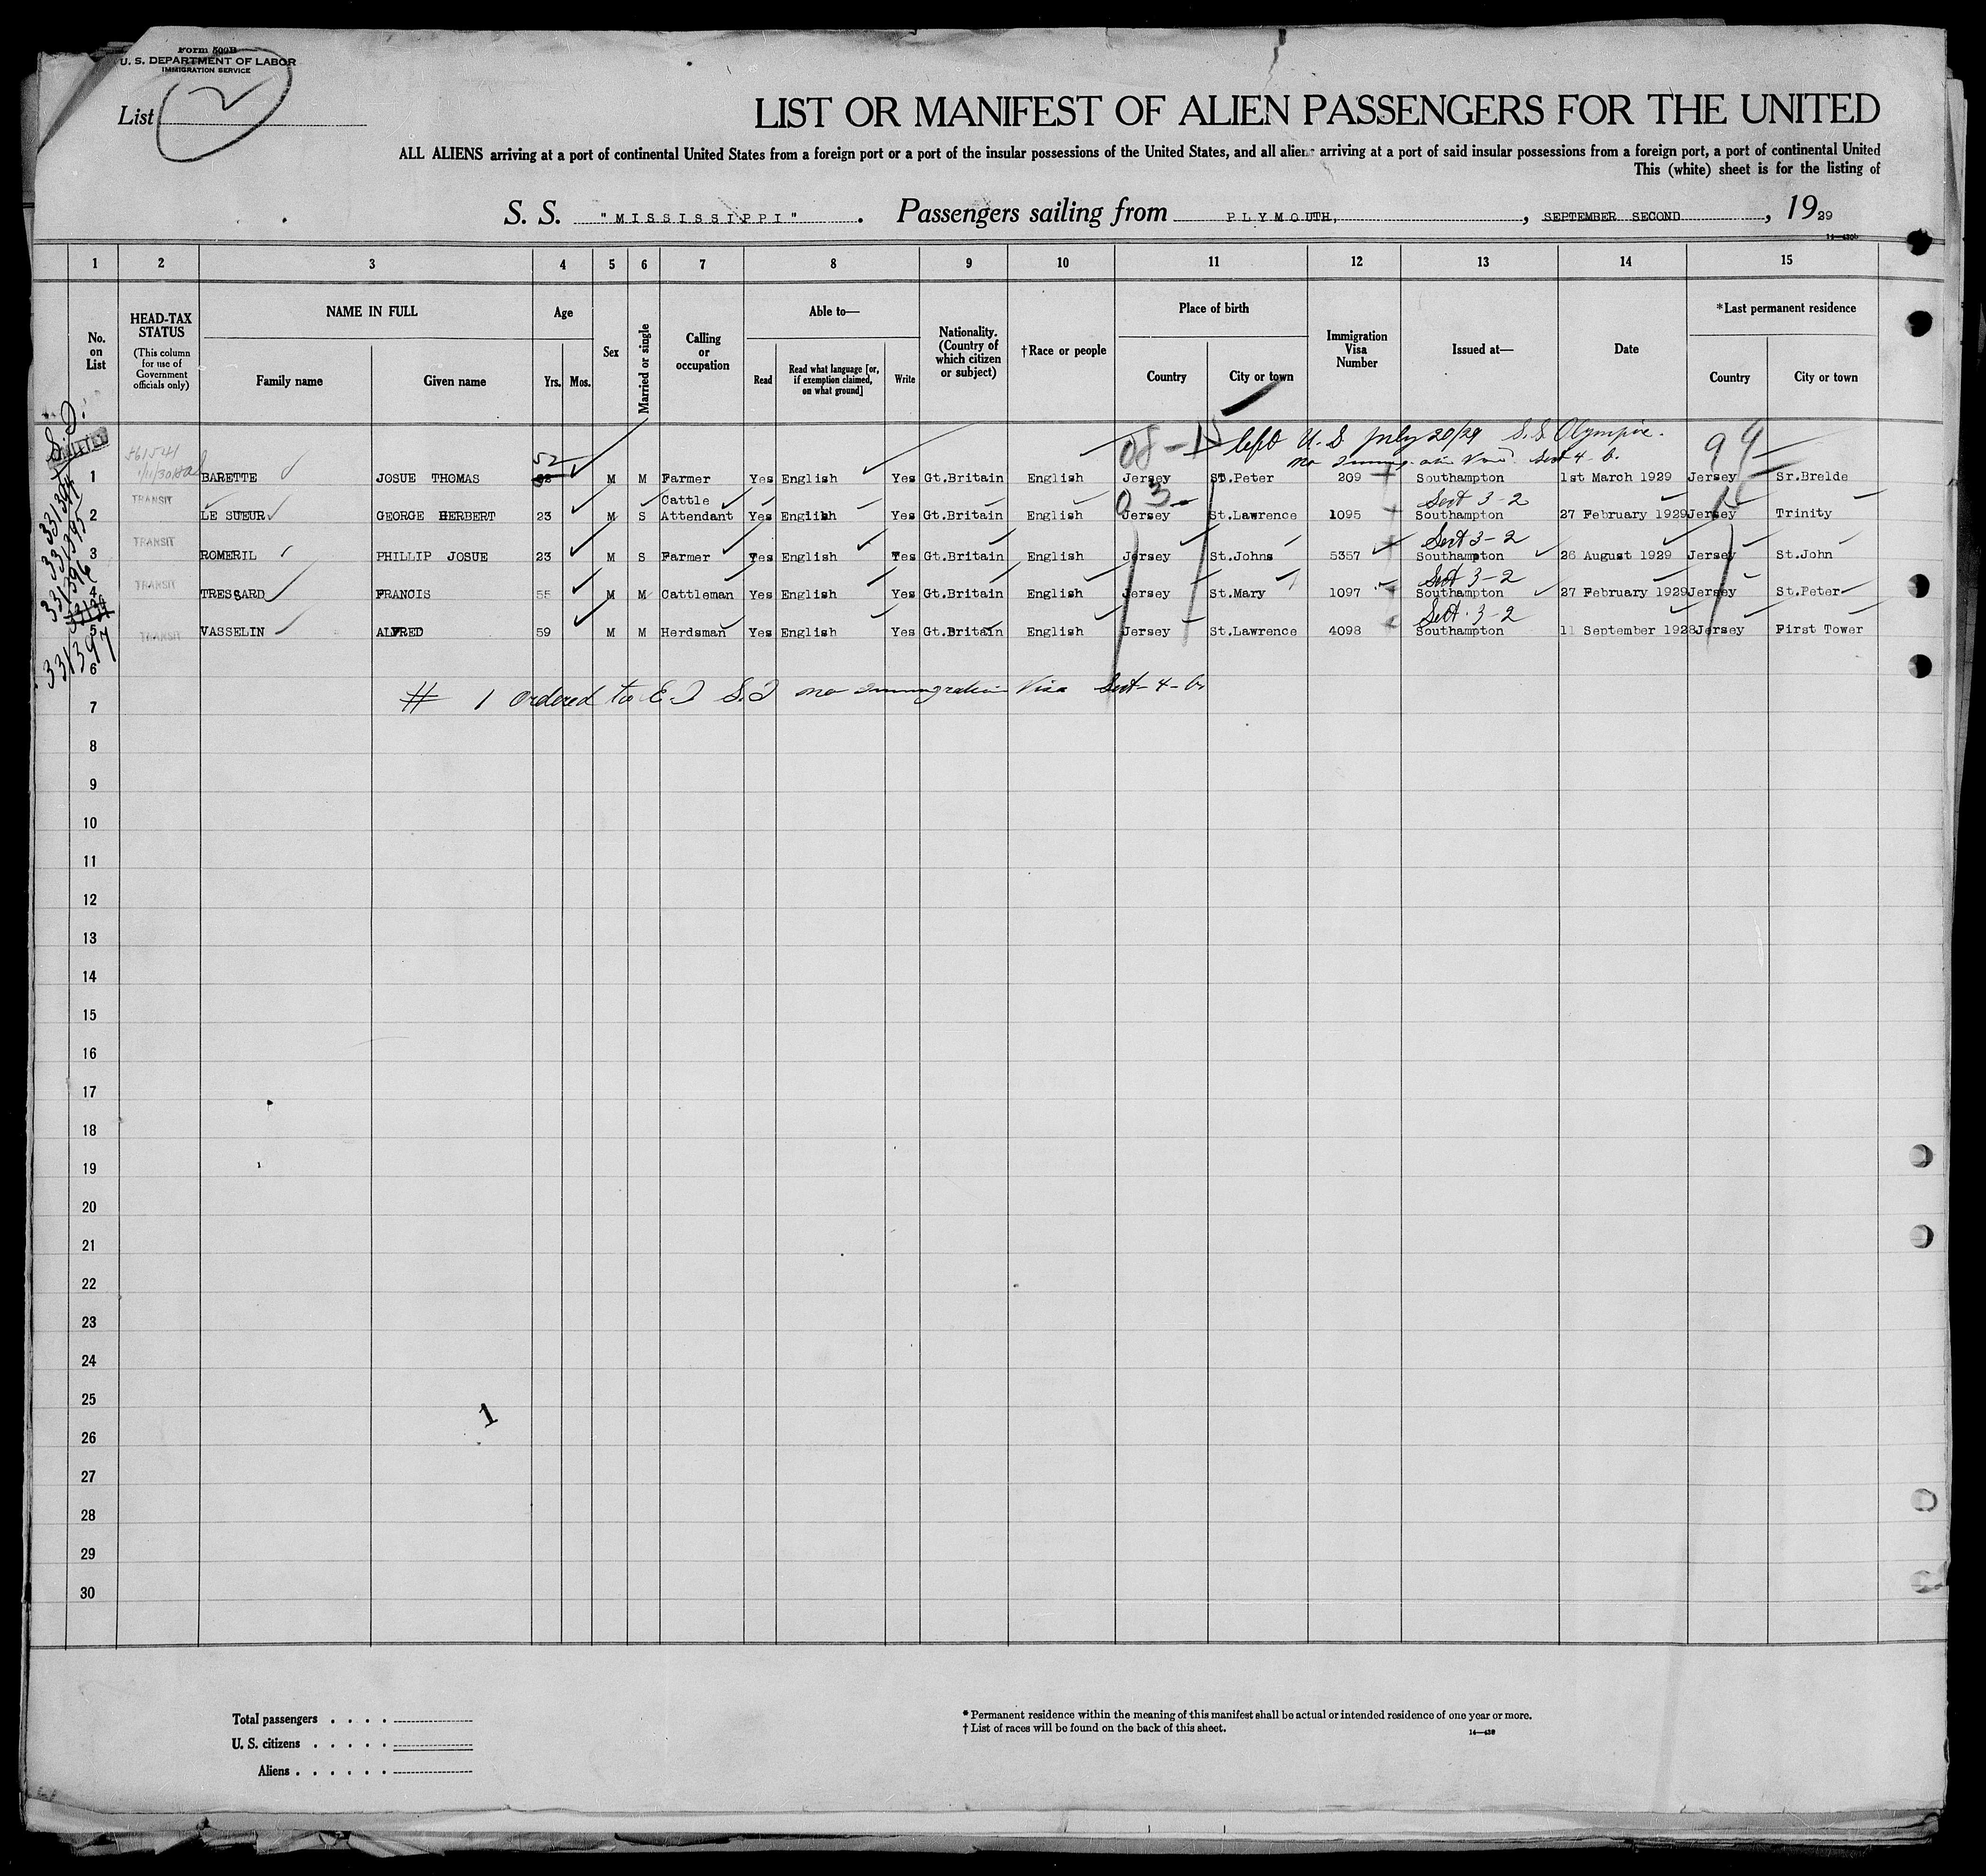 Form 500B
U. S. DEPARTMENT OF LABOR
IMMIGRATION SERVICE
List 2
LIST OR MANIFEST OF ALIEN PASSENGERS FOR THE UNITED
ALL ALIENS arriving at a port of continental United States from a foreign port or a port of the insular possessions of the United States, and all aliens arriving at a port of said insular possessions from a foreign port, a port of continental United
This (white) sheet is for the listing of
S. S. "MISSISSIPPI". Passengers sailing from PLYMOUTH, , SEPTEMBER SECOND , 1929
1 2 3 4 5 6 7 8 9 10 11 12 13 14 15
No. on List
HEAD-TAX STATUS
(This column for use of Government officials only)
NAME IN FULL
Family name Given name
Age
Yrs. Mos.
Sex
Married or single
Calling or occupation
Able to—
Read
Read what language [or, if exemption claimed, on what ground]
Write
Nationality. (Country of which citizen or subject)
†Race or people
Place of birth
Country City or town
Immigration Visa Number
Issued at—
Date
*Last permanent residence
Country City or town
S.I.
08- left U.S. July 20/29 S.S. Olympic. 99
52
1 BARETTE JOSUE THOMAS M M Farmer Yes English Yes Gt.Britain English Jersey St.Peter 209 Southampton 1st March 1929 Jersey Sr.Brelde
TRANSIT Cattle 03 Sect 3-2
2 LE SUEUR GEORGE HERBERT 23 M S Attendant Yes English Yes Gt.Britain English Jersey St.Lawrence 1095 Southampton 27 February 1929 Jersey Trinity
TRANSIT Sect 3-2
3 ROMERIL PHILLIP JOSUE 23 M S Farmer Yes English Yes Gt.Britain English Jersey St.Johns 5357 Southampton 26 August 1929 Jersey St.John
TRANSIT Sect 3-2
4 TRESSARD FRANCIS 55 M M Cattleman Yes English Yes Gt.Britain English Jersey St.Mary 1097 Southampton 27 February 1929 Jersey St.Peter
TRANSIT Sect. 3-2
5 VASSELIN ALFRED 59 M M Herdsman Yes English Yes Gt.Britain English Jersey St.Lawrence 4098 Southampton 11 September 1928 Jersey First Tower
331394
331395
331396
331397
6
# 1 ordered to E I S.I no immigration Visa Sect-4-b
7
8
9
10
11
12
13
14
15
16
17
18
19
20
21
22
23
24
25
1
26
27
28
29
30
Total passengers . . . .
U. S. citizens . . . . .
Aliens . . . . . .
* Permanent residence within the meaning of this manifest shall be actual or intended residence of one year or more.
† List of races will be found on the back of this sheet.
14—430